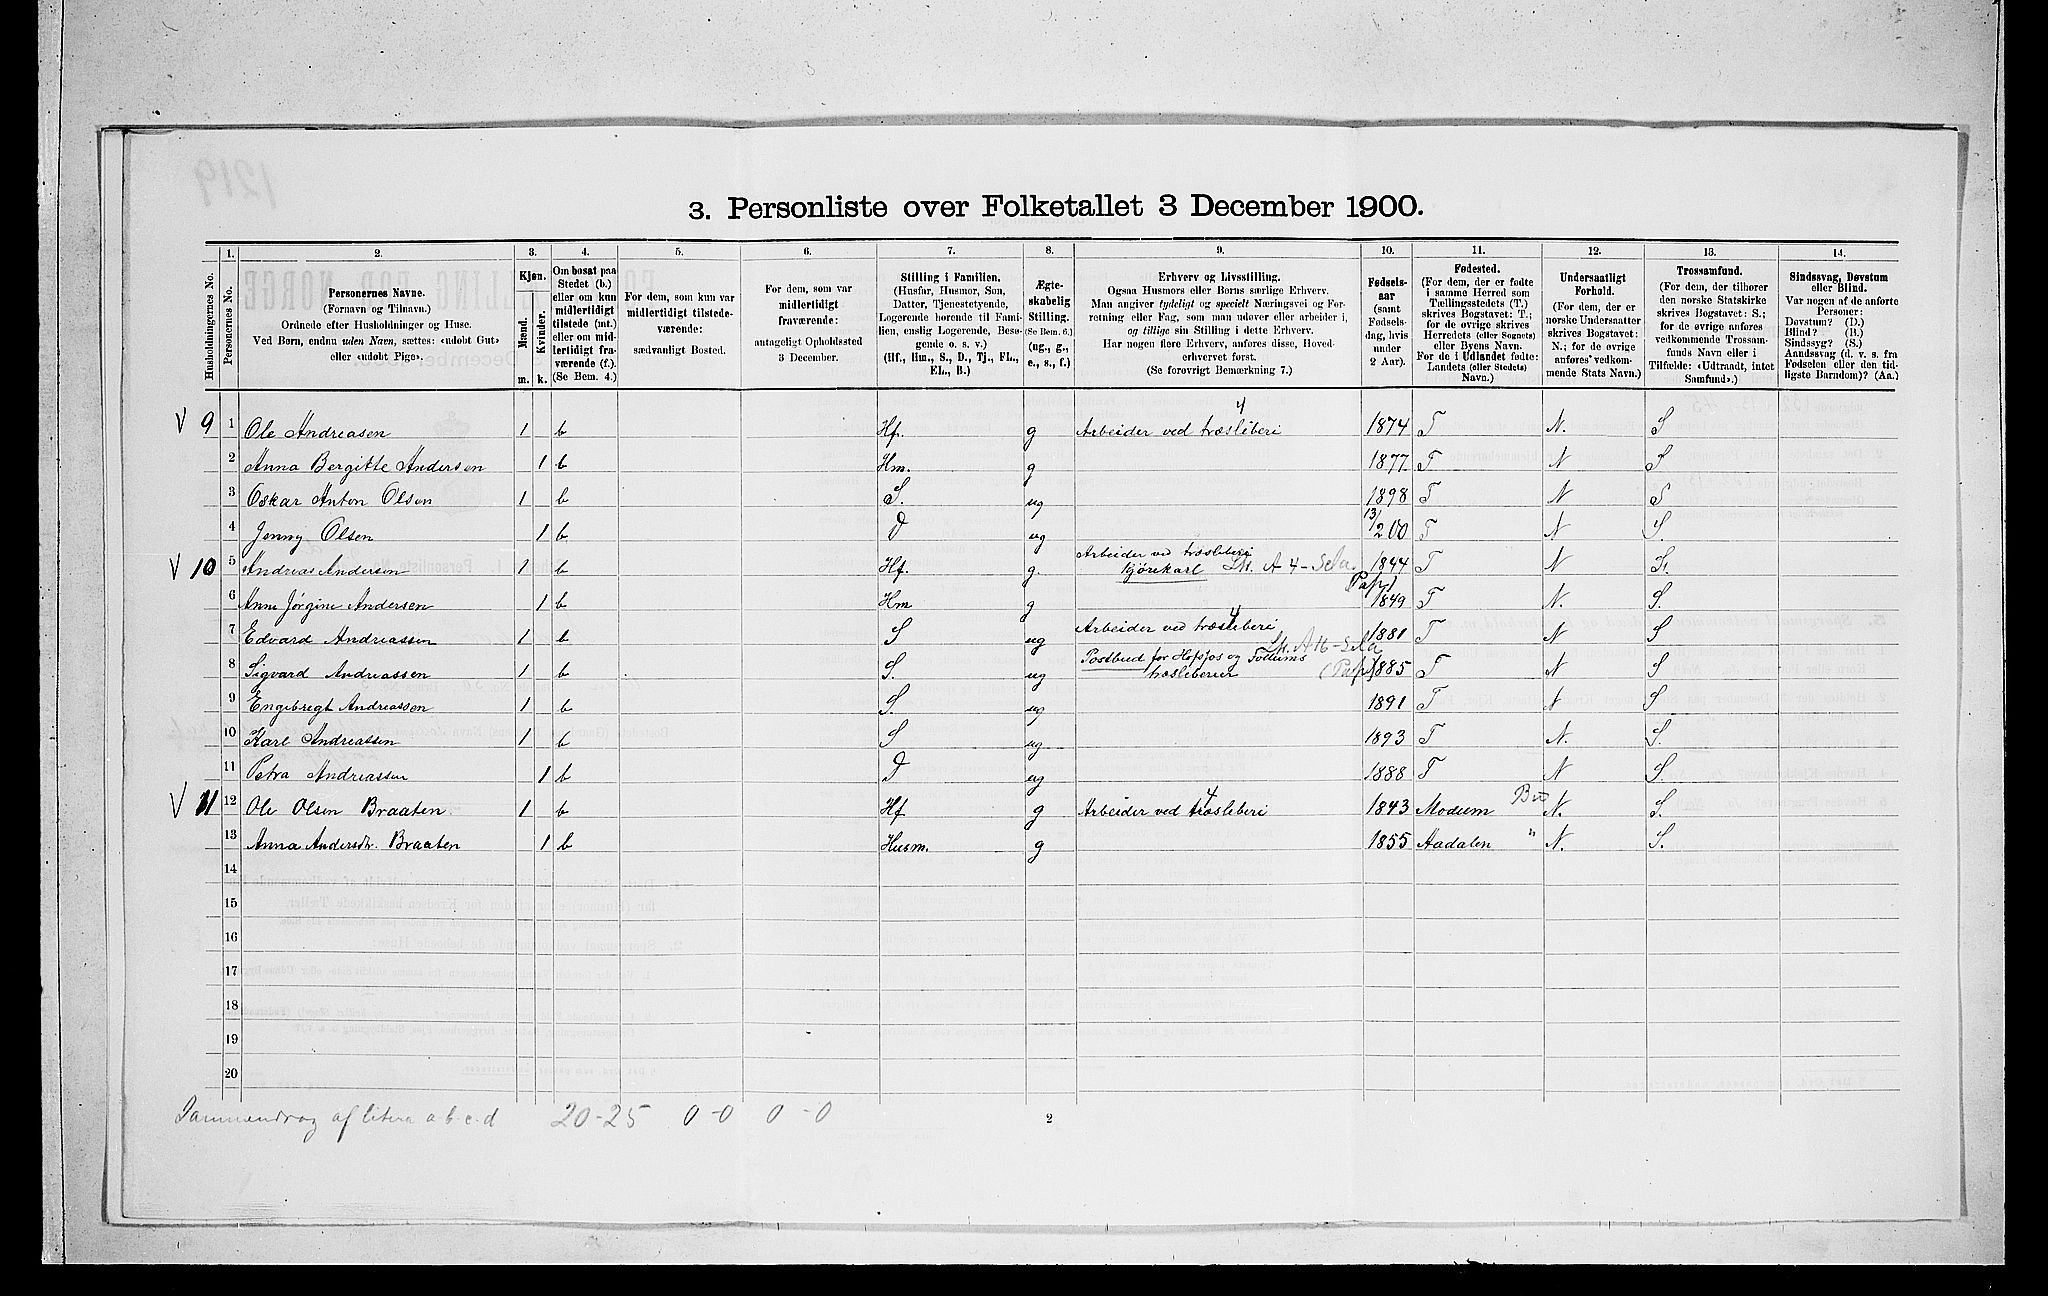 3. Personliste over Folketallet 3 December 1900.
1. 2. 3. 4. 5. 6. 7. 8. 9. 10. 11. 12. 13. 14.
Husholdningernes No.
Personernes No.
Personernes Navne.
(Fornavn og Tilnavn.)
Ordnede efter Husholdninger og Huse.
Ved Børn, endnu uden Navn, sættes: «udøbt Gut»
eller «udøbt Pige».
Kjøn.
Mænd.
Kvinder.
m. k.
Om bosat paa
Stedet (b.)
eller om kun
midlertidigt
tilstede (mt.)
eller om mid-
lertidigt fra-
værende (f.).
(Se Bem. 4.)
For dem, som kun var
midlertidigt tilstede-
værende:
sædvanligt Bosted.
For dem, som var
midlertidigt
fraværende:
antageligt Opholdssted
3 December.
Stilling i Familien.
(Husfar, Husmor, Søn,
Datter, Tjenestetyende,
Logerende hørende til Fami-
lien, enslig Logerende, Besø-
gende o. s. v.)
(Hf., Hm., S., D., Tj., FL.,
EL., B.)
Ægte-
skabelig
Stilling.
(Se Bem. 6.)
(ug., g.,
e., s., f.)
Erhverv og Livsstilling.
Ogsaa Husmors eller Børns særlige Erhverv.
Man angiver tydeligt og specielt Næringsvei og For-
retning eller Fag, som man udøver eller arbeider i,
og tillige sin Stilling i dette Erhverv.
Har nogen flere Erhverv, anføres disse, Hoved-
erhvervet først.
(Se forøvrigt Bemærkning 7.)
Fødsels-
aar
(samt
Fødsels-
dag, hvis
under
2 Aar).
Fødested.
(For dem, der er fødte
i samme Herred som
Tællingsstedets (T.)
skrives Bogstavet: T.;
for de øvrige skrives
Herredets (eller Sognets)
eller Byens Navn.
For de i Udlandet fødte:
Landets (eller Stedets)
Navn.)
Undersaatligt
Forhold.
(For dem, der er
norske Undersaatter
skrives Bogstavet:
N.; for de øvrige
anføres vedkom-
mende Stats Navn.)
Trossamfund.
(For dem, der tilhører
den norske Statskirke
skrives Bogstavet: S.;
for de øvrige anføres
vedkommende Trossam-
funds Navn eller i
Tilfælde: «Udtraadt, intet
Samfund».)
Sindssvag, Døvstum
eller Blind.
Var nogen af de anførte
Personer:
Døvstum? (D.)
Blind? (B.)
Sindssyg? (S.)
Aandssvag (d. v. s. fra
Fødselen eller den tid-
ligste Barndom)? (Aa.)
V 9 1 Ole Andreasen 1 b Hf. g Arbeider ved træsliberi 4 1874 T N. S
2 Anna Bergitte Andersen 1 b Hm. g 1877 T N S
3 Oskar Anton Olsen 1 b S. ug 1898 T N S
4 Jenny Olsen 1 b D ug 13/2 00 T N S.
V 10 5 Andreas Andersen 1 b Hf. g. Arbeider ved træsliberi
Kjørekarl A 4 - Sela. (Pap) 1844 T N S.
6 Anne Jørgine Andersen 1 b Hm g 1849 T N. S.
7 Edvard Andreassen 1 b S ug Arbeider ved træsliberi 4 1881 T N S
8 Sigvard Andreassen 1 b S. ug Postbud for Hofsfos og
træsliberier (Pap) 1885 T N S
9 Engebregt Andreassen 1 b S. ug 1891 T N S
10 Karl Andreassen 1 b S ug 1893 T N. S.
11 Petra Andreassen 1 b D ug 1888 T N S.
V 11 12 Ole Olsen Braaten. 1 b Hf g Arbeider ved træsliberi 4 1843 Modum Bu N. S.
13 Anna Andersdr. Braaten 1 b Husm. g 1855 Aadalen " N. S.
14
15
16
17
18
19
20
Sammendrag af litera a-b-c-d 20-25 0-0 0-0
2